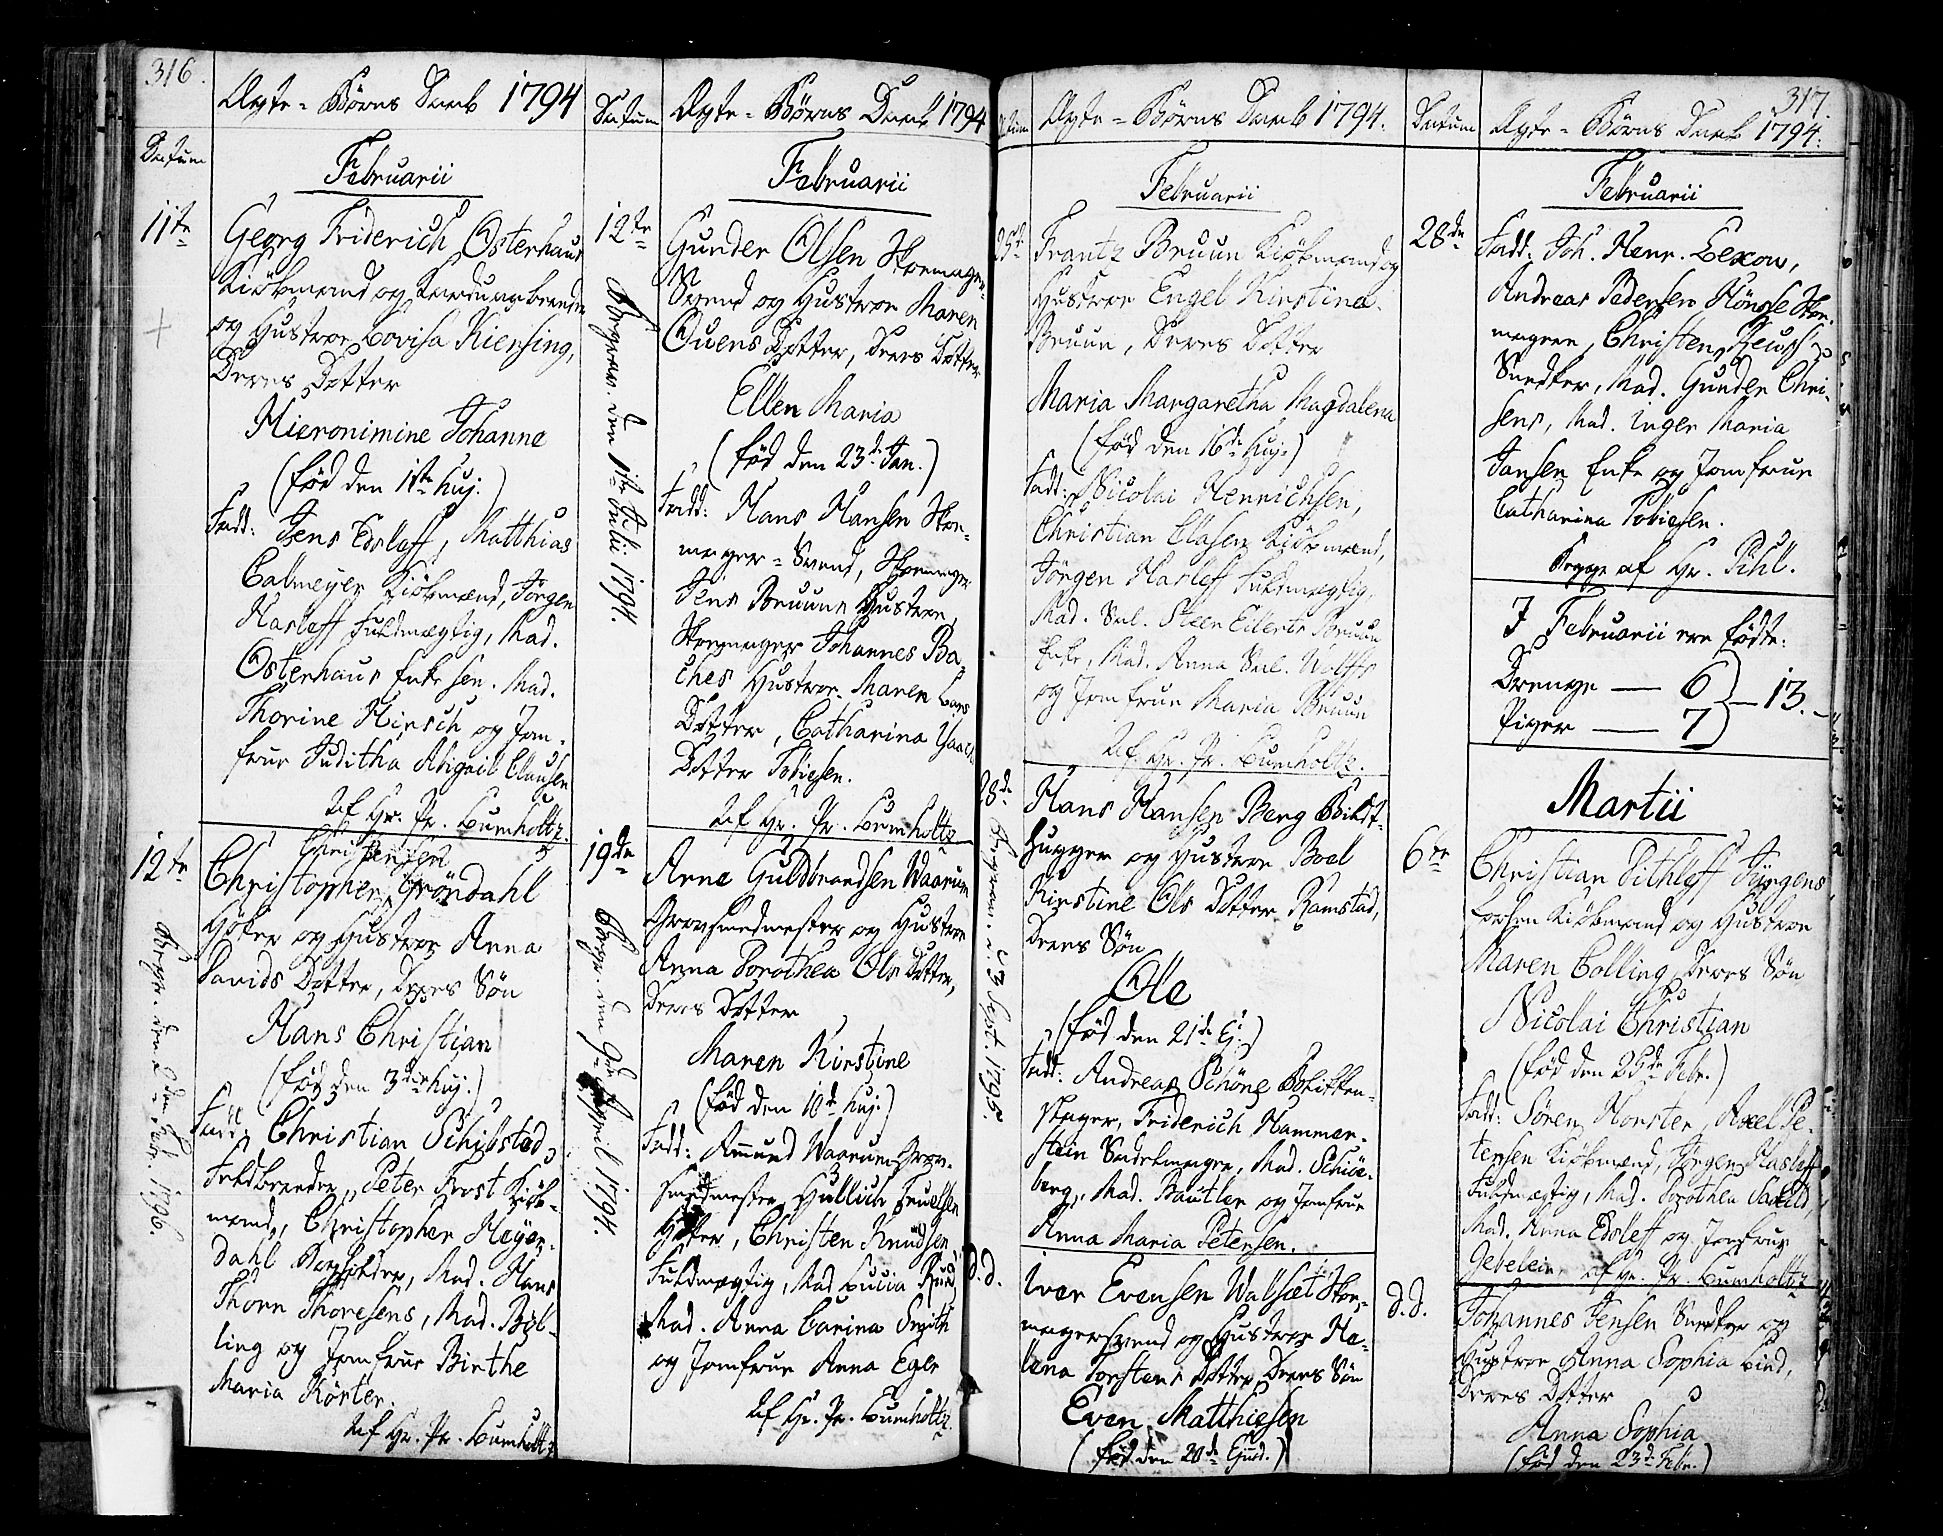 316.
Ægte-Børns Daab 1794
Datum
Februarii
11te
Georg Friderich Osterhaus
Kiøbmand og
og Hustroe Lovisa Kiersing,
Deres Dotter
Hieronimine Johanne
(fød den 1ste huj.)
Fadd: Jens Edsleff, Matthias
Calmeyer Kiöbmænd, Jörgen
Hasleff Fuldmægtig, Mad.
Osterhaus Enke sen. Mad.
Thorine Hirsch og Jom-
frue Juditha Abigail Clausen
Af Hr. Pr. Lumholtz.
12te
Christensen
Christopher Gröndahl
Höker og Hustroe Anna
Davids Dotter, Deres Sön
Hans Christian
(fød den 3die huj.)
Fadd: Christian Schibstad,
Peter Frost Kiöb-
mand, Christopher Heyer-
dahl Mad. Hans
Thorn Thoresens, Mad. Böl-
ling og Jomfrue Birthe
Maria Körter.
Af Hr. Pr. Lumholtz
Begr. den 1796.
Datum
Ægte-Børns Daab 1794
Februarii
12te
Gunder Olsen Skomager-
Svend og Hustroe Maren
Ouens Dotter, Deres Dotter
Ellen Maria
(fød den 23de Jan.)
Fadd: Hans Hansen Skoe-
mager-Svend, Skomager
Jens Bruuns Hustroe,
Skomager Johannes Ba-
ches Hustroe Maren Lars
Dotter, Catharina
Dotter Tobiesen.
Af Hr. Pr. Lumholtz
Begrav. den 1ste Julii 1794.
19de
Arne Guldbrandsen Waarum
Grovsmedmester og Hustroe
Anna Dorothea Ols Dotter,
Deres Dotter
Maren Kirstine
(fød den 10de huj.)
Fadd: Amund Waarum Grov-
smedmester,
Höker, Christen Knudsen
Fuldmægtig, Mad. Lucia
Mad. Anna Carina Smith
og Jomfrue Anna Eger
Af Hr. Pr. Lumholtz
Begr. den April 1794.
Ægte-Børns Daab 1794.
Februarii
25de
Frantz Bruun Kiöbmand og
Hustroe Engel Kirstina
Bruun, Deres Dotter
Maria Margaretha Magdalena
(fød den 16de Huj.)
Fadd: Nicolai Henrichsen,
Christian Clasen Kiöbmænd,
Jörgen Hasleff Fuldmægtig,
Mad. Sal. Steen Eilerts Bruun
Enke, Mad. Anna Sal. Wulffs
og Jomfrue Maria Bruun
Af Hr. Pr. Lumholtz.
28de
Hans Hansen Berg Bildt-
hugger og Hustroe Boel
Kirstine Ols Dotter Ramstad,
Deres Sön
Ole
(fød den 21de Ej.)
Fadd: Andreas Schöne Blikken-
slager, Friderich Hammer-
stein Sadelmager, Mad. Schiö-
berg, Mad. Bautler og Jomfrue
Anna Maria Petersen.
Begrav. d. 3 Sept. 1795.
d.d.
Iver Evensen Walsæt Skoe-
magersvend og Hustroe He-
lena Torstens Dotter Deres Sön
Even Matthiesen
(fød den 20de Ejusd.)
317.
Datum
Ægte-Børns Daab 1794.
Februarii
28de
Fadd: Joh. Henr. Lexow,
Andreas Pedersen Skoe-
magere, Christen
Snedker, Mad. Gunder Chri-
sens, Mad. Inger Maria
Jansen Enke og Jomfrue
Catharina Tobiesen.
Begge af Hr. Pihl.
I Februarii ere fødte:
Drenge — 6
Piger — 7
— 13. —
Martii
6te
Christian Dithleff Jürgens
Lorsen Kiöbmand og Hustroe
Maren Colling Deres Sön
Nicolai Christian
(fød den 26de Febr.)
Fadd: Sören Horster, Axel Pe-
tersen Kiöbmænd, Jörgen Hasleff
Fuldmægtig, Mad. Dorothea
Mad. Anna Edsleff og Jomfrue
Gebelein. af Hr. Pr. Lumholtz
d.d.
Johannes Jensen Snedker og
Hustroe Anna Sophia Lind,
Deres Dotter
Anna Sophia
(fød den 23de Febr.)